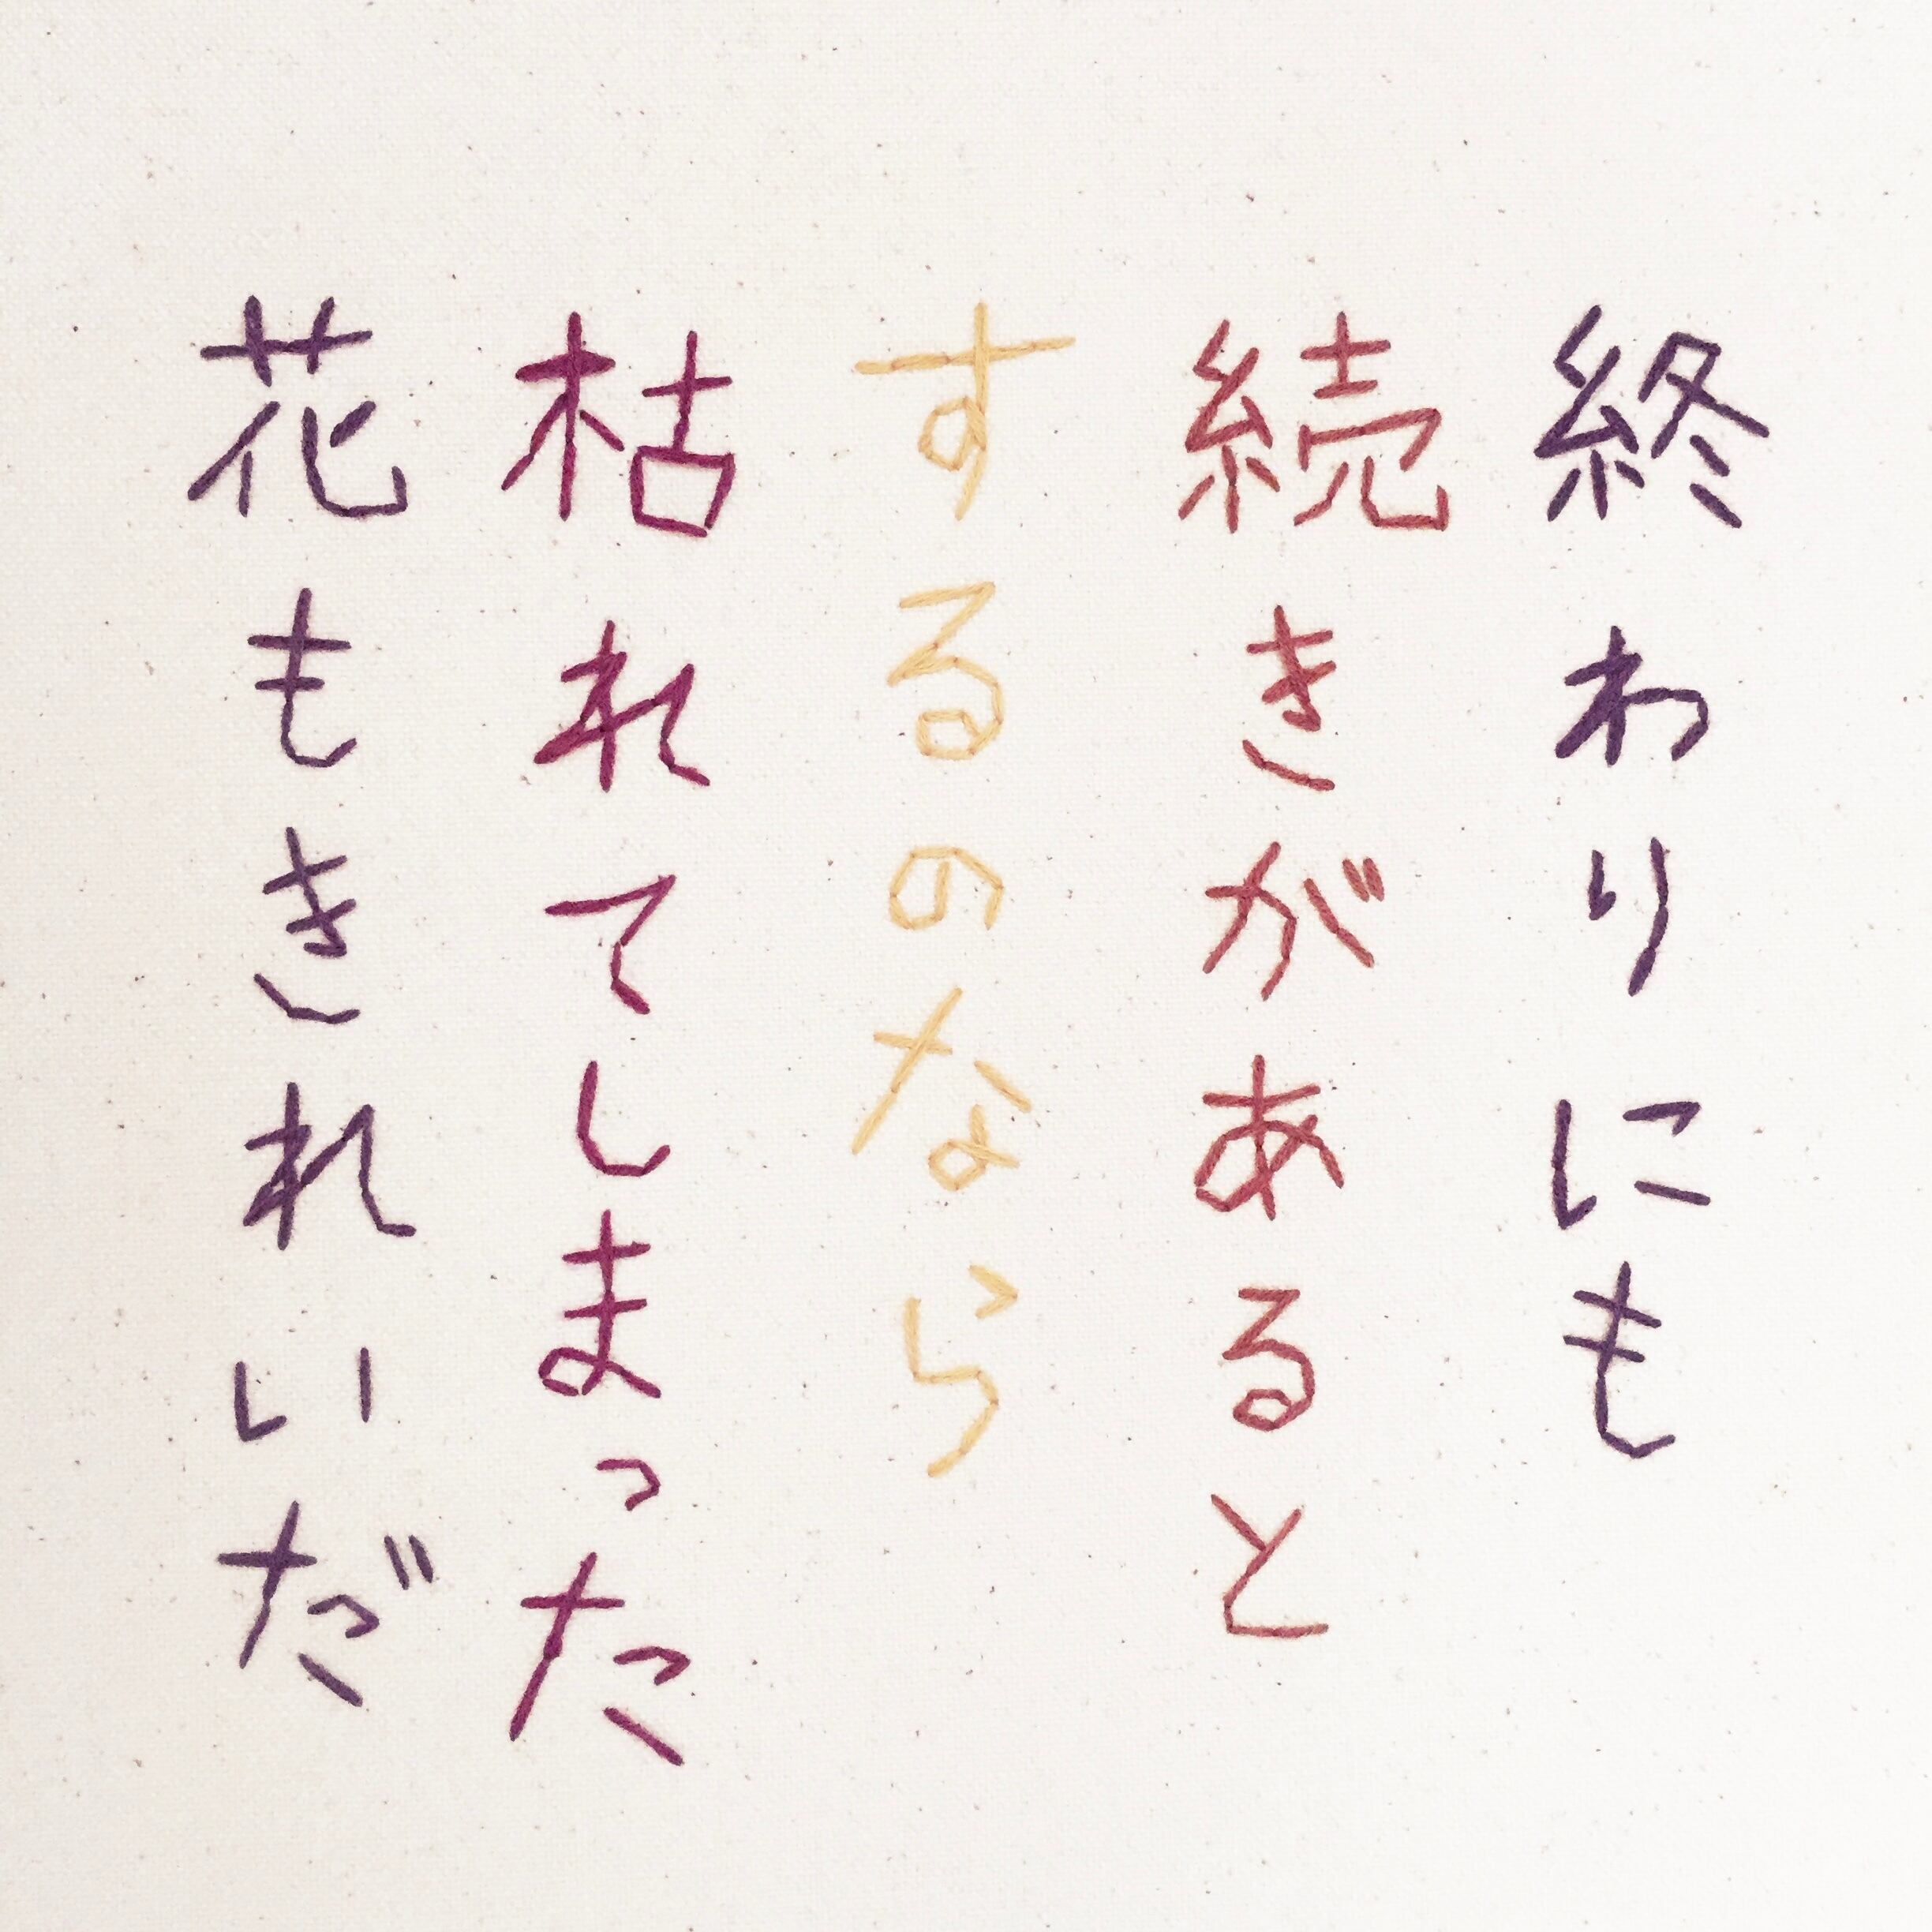 終わりにも
続きがあると
するのなら
枯れてしまった
花もきれいだ